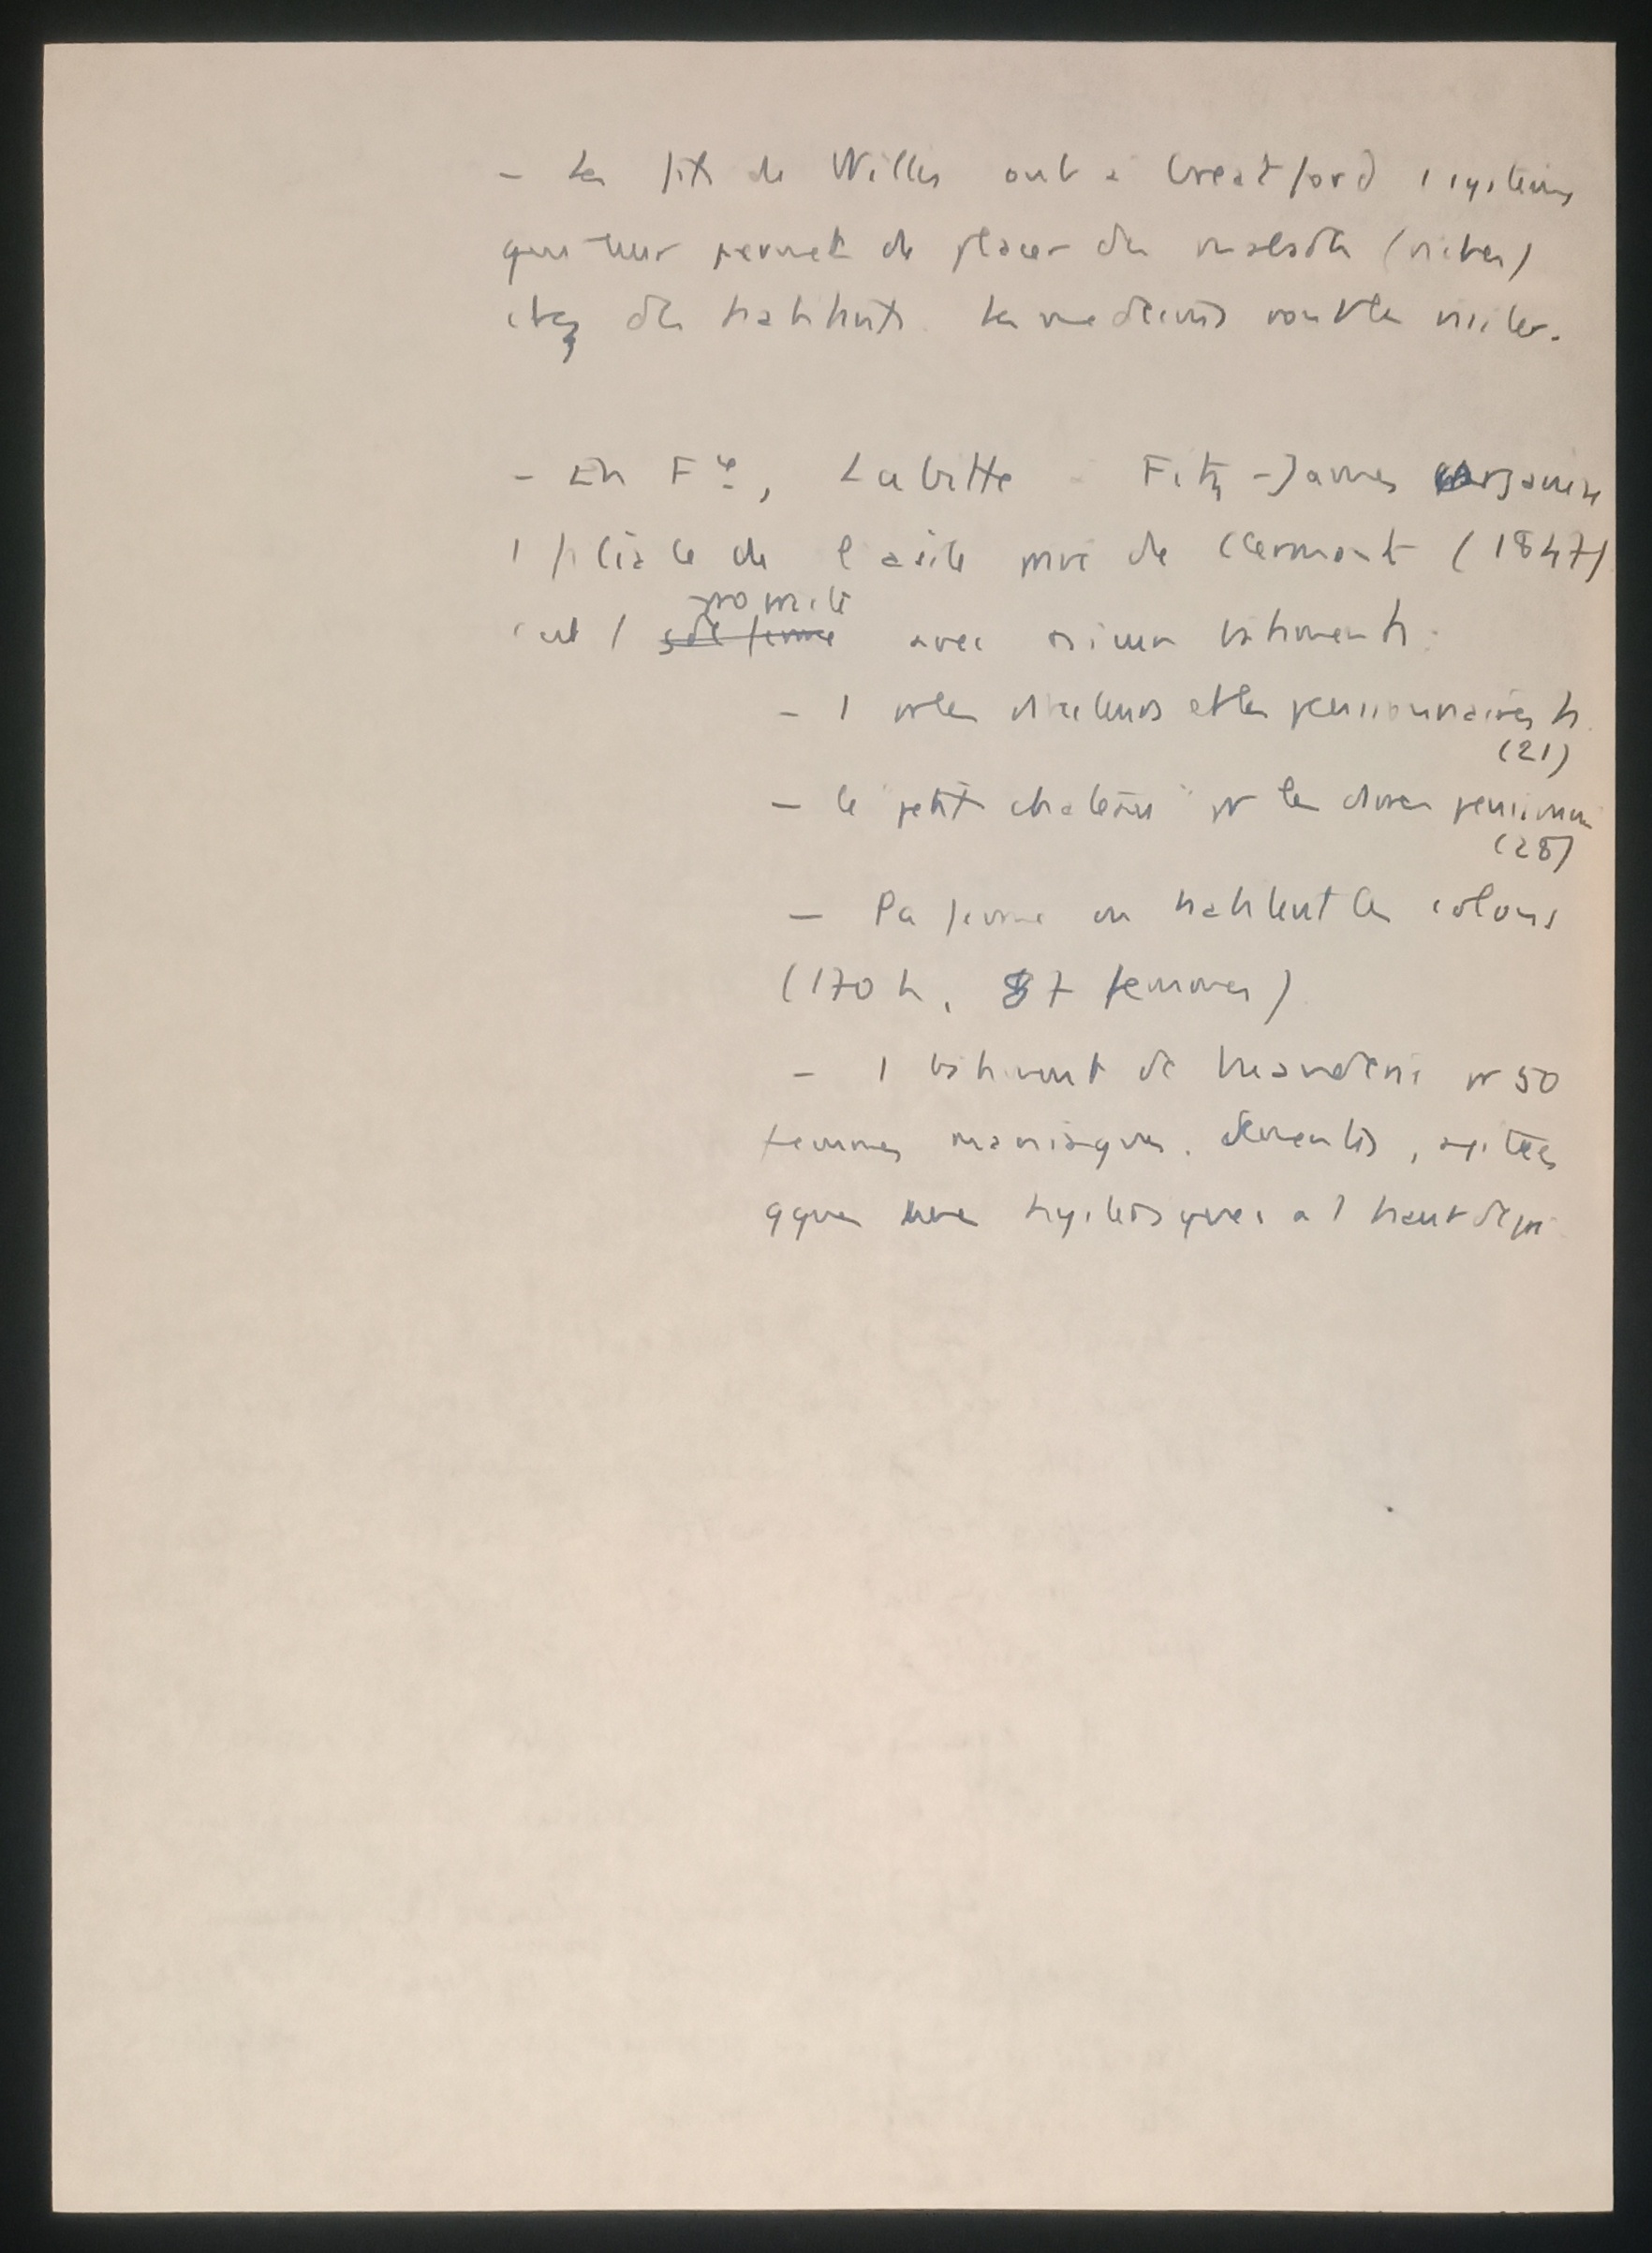 - Les fils de Willis ont à Greatford 1 système
qui leur permet de placer des malades (riches)
chez des habitants. Les médecins vont les visiter.
- En Fce, Labitte - Fitz-James organise
1 filiale de l'asile privé de Clermont (1847)
c'est 1 propriété avec plusieurs bâtiments :
- 1 pr les directeurs et les pensionnaires h.
(21)
- le "petit château" pr les dames pensionn
(28)
- la ferme où habitent les colons
(170 h, 87 femmes)
- 1 bâtiment de pr 50
femmes maniaques, démentes, agitées
qques épileptiques